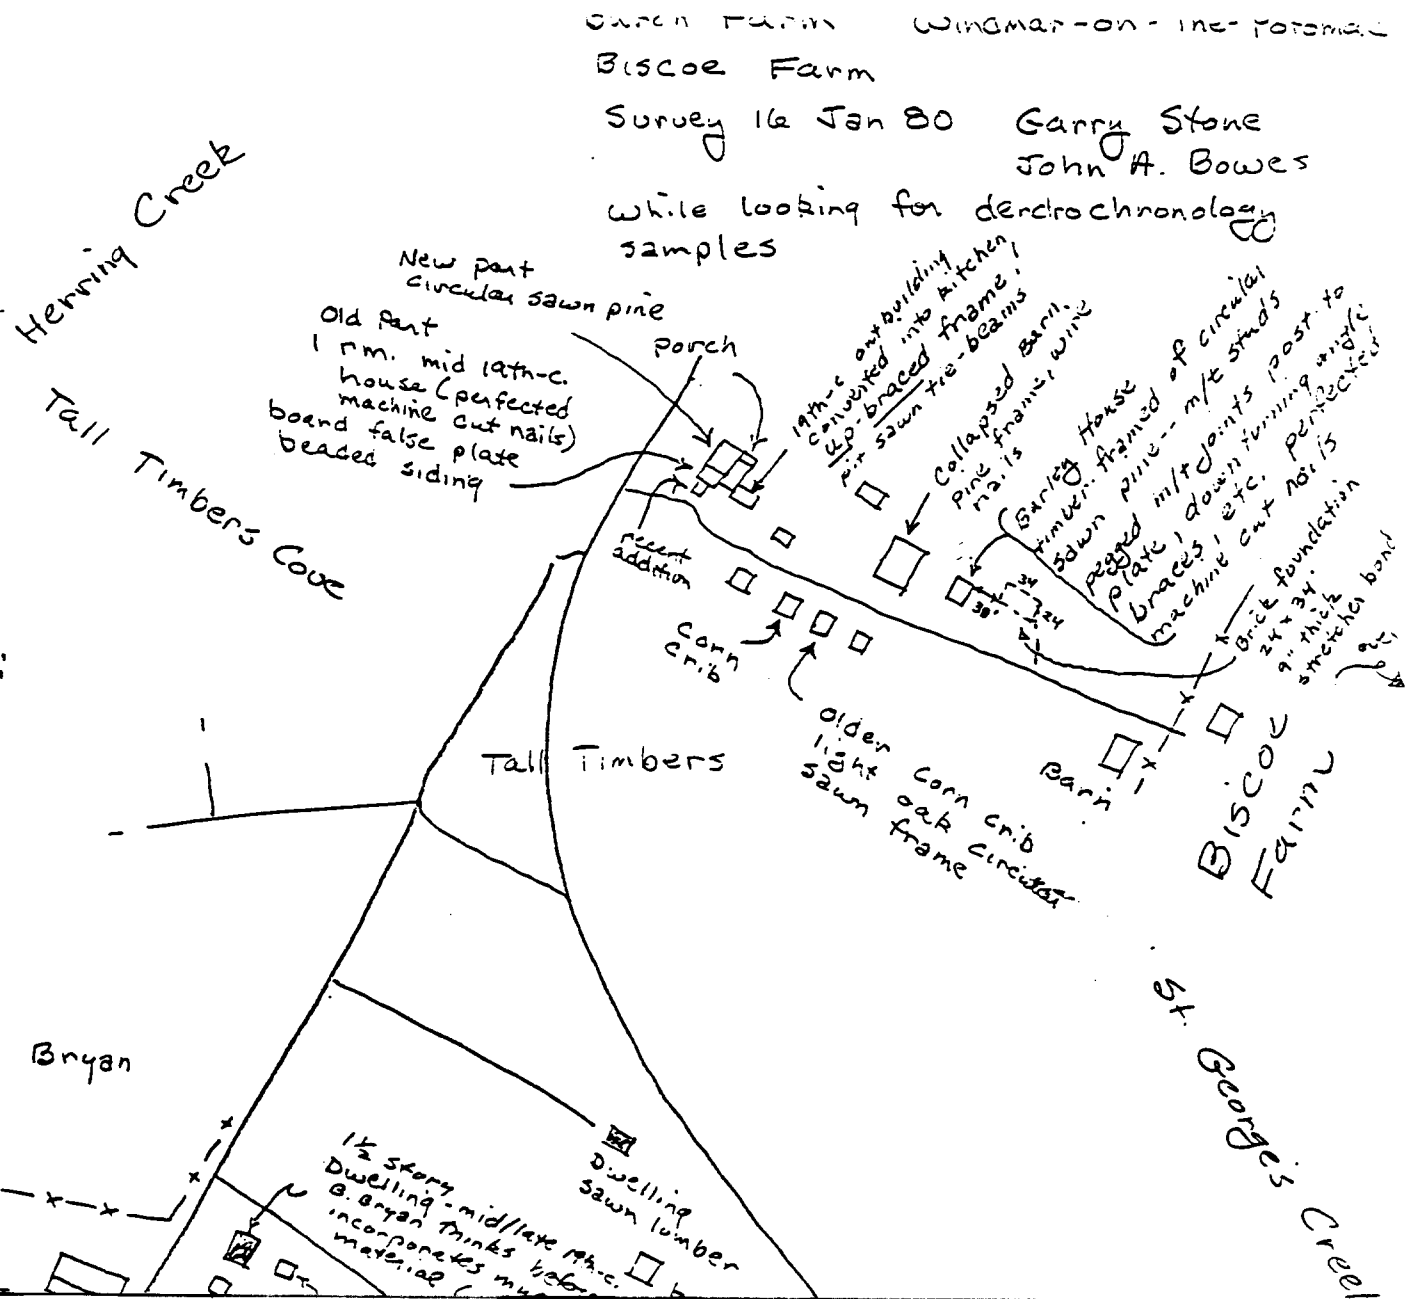 Farm Windmar-on-the-Potomac
Biscoe Farm
Survey 16 Jan 80 Garry Stone
John A. Bowes
while looking for derdrochronology
samples
Herring Creek
Tall Timbers Cove
New part
circular sawn pine
Old Part
1 rm. mid 19th-c.
house (perfected
machine cut nails)
board false plate
beaded siding
porch
recent
addition
19th-c outbuilding
converted into kitchen,
up-braced frame,
pit sawn tie-beams
Collapsed Barn.
Pine frame, wire
nails
Barley House
timber framed of circular
sawn pine -- m/t studs
pegged m/t joints post to
plate, down turning angle
braces, etc. perfected
machine cut nails
34
30'
24
Brick foundation
24 x 34'
9" thick
stretcher bond
Corn
crib
Older corn crib
light oak circular
sawn frame
Tall Timbers
Barn
Biscoe
Farm
St. George's Creek
Bryan
1½ story
Dwelling - mid/late 19th-c.
B. Bryan thinks
incorporates
material (
Dwelling
sawn lumber